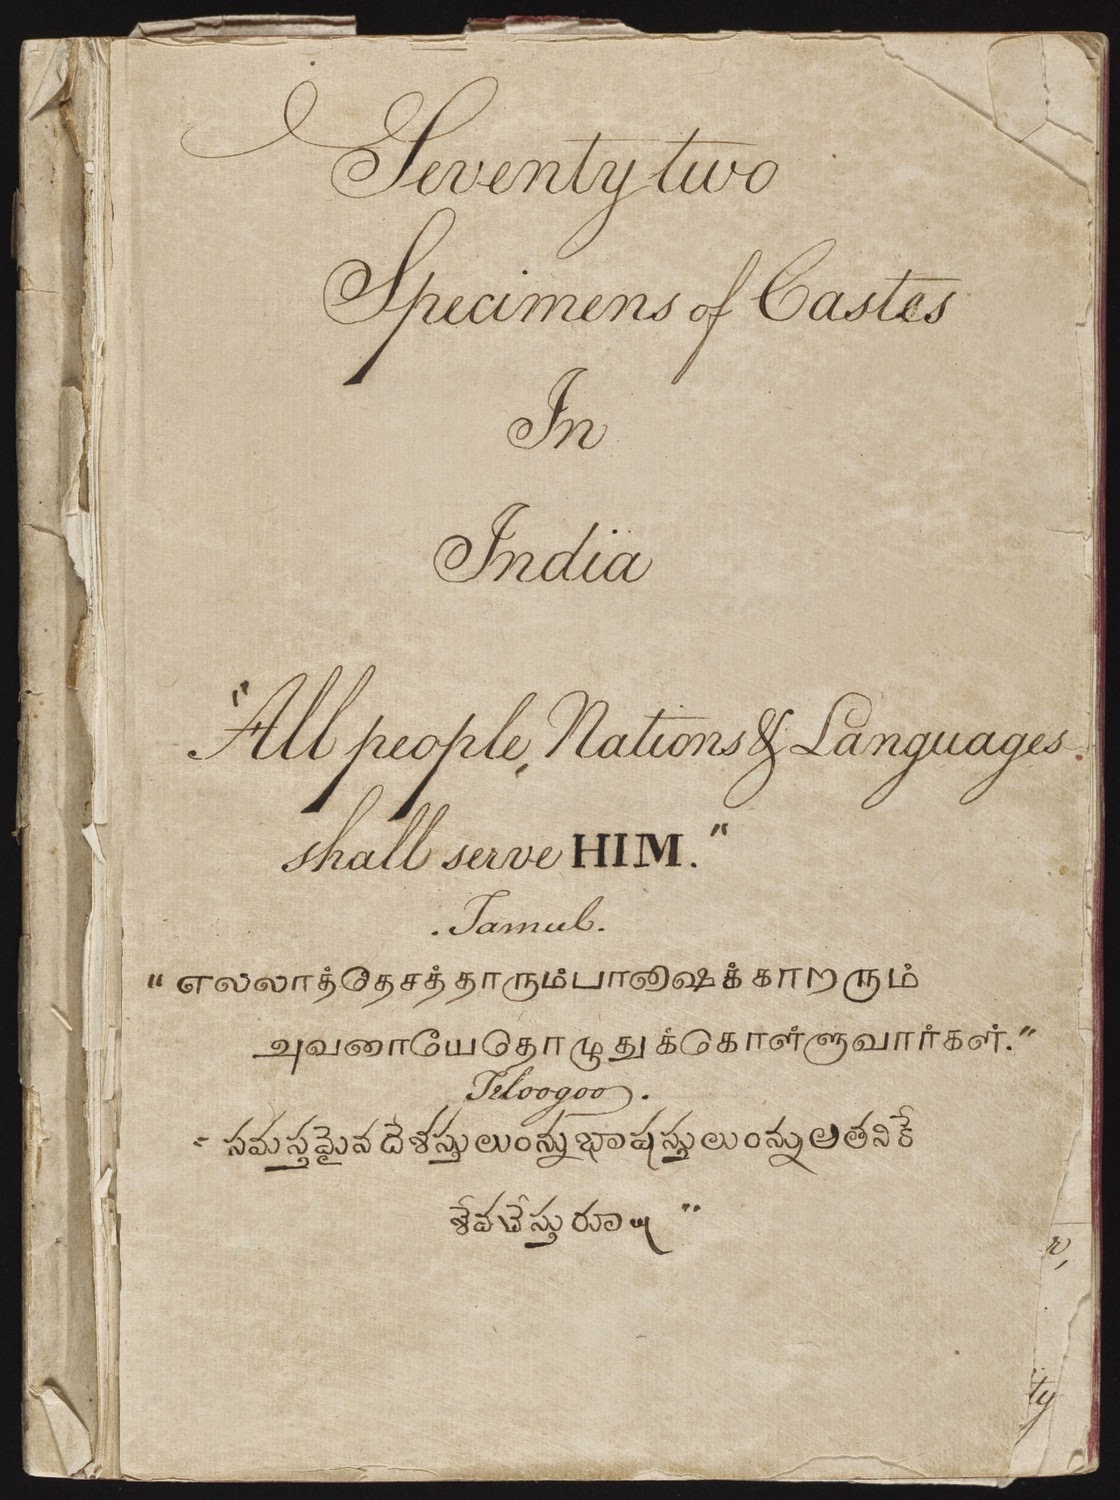 Seventy two
Specimens of Castes
In
India
"All people, Nations & Languages
shall serve HIM."
. Tamul.
"எல்லாத்தேசத்தாரும்பாஷைக்காறரும்
அவனையேதொழுதுக்கொள்ளுவார்கள்."
Teloogoo.
సమస్తమైన దేశస్తులుంన్ను భాషస్తులుంన్ను అతనికే
శేవ చేస్తురు
r,
ty